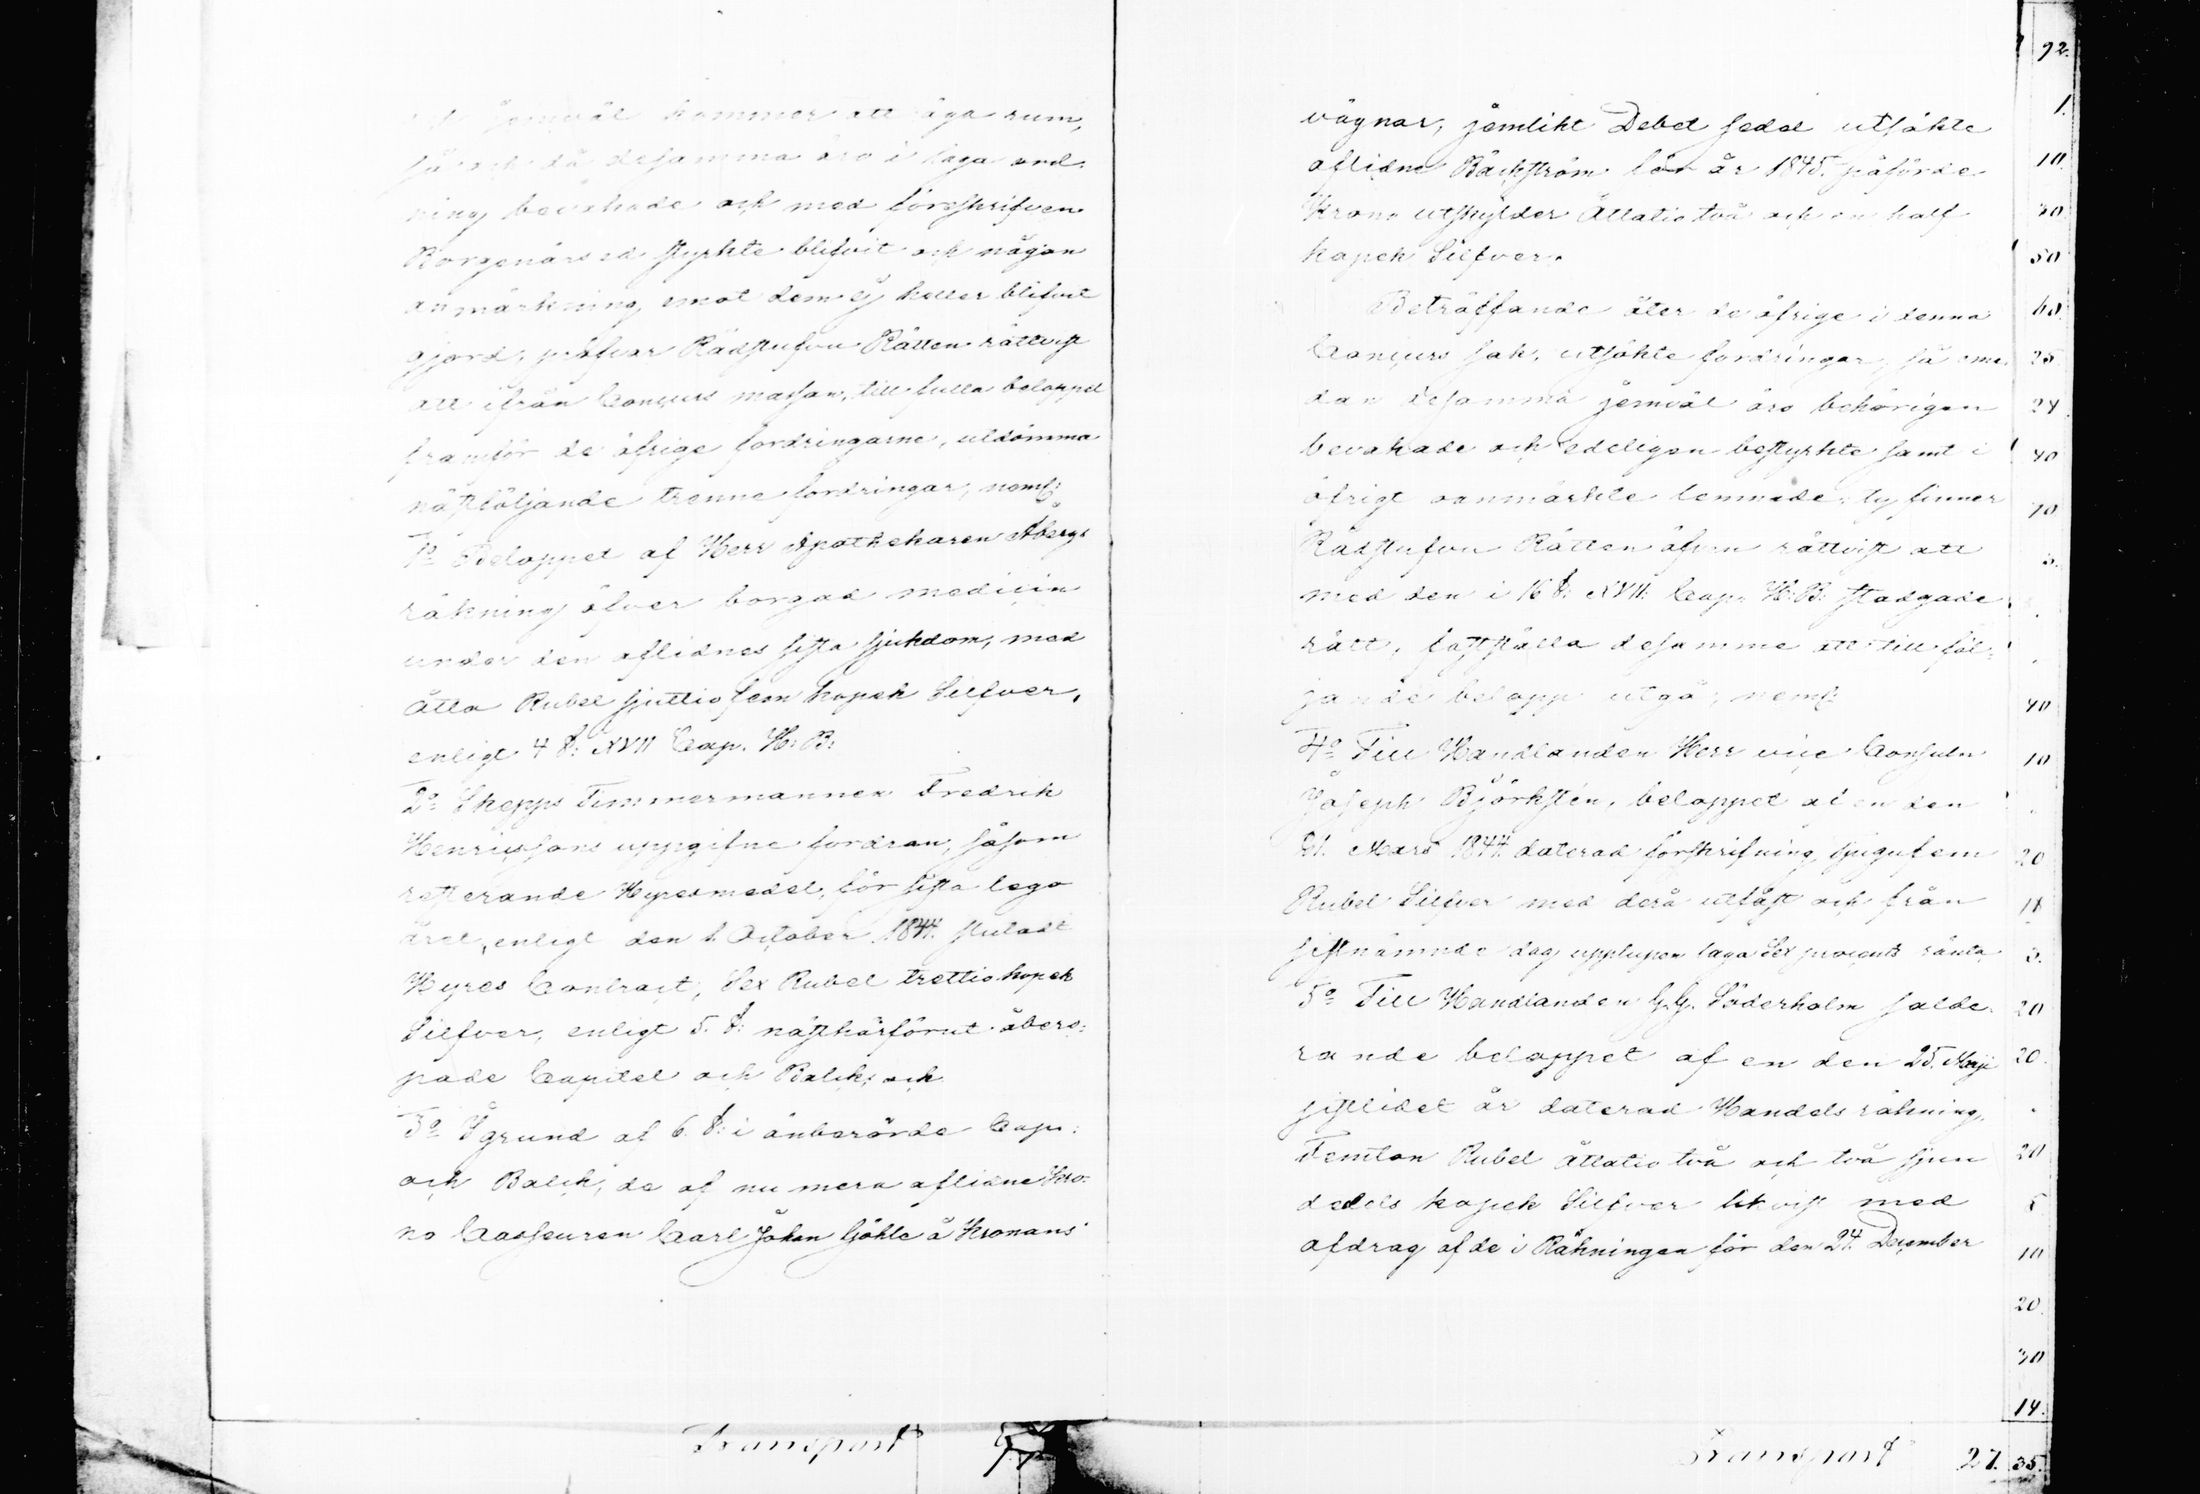 jemväl kommer att äga rum,
så och då desamma äro i laga ord-
ning bevakade och med föreskrifven
Borgenärs ed styrkte blifvit och någon
anmärkning emot dem ej heller blifvit
gjord, pröfvar Rådstufvu Rätten rättvist
att ifrån Concurs massan, till fulla beloppet
framför de öfrige fordringarne, utdömma
nästföljande trenne fordringar, neml:
1:o Beloppet af Herr Apothekaren Åbergs
räkning öfver borgad medicin
under den aflidnes sista sjukdom, med
Åtta Rubel sjuttiofem kopek Silfver,
enligt 4 §: XVII Cap. H: B:
2:o Skepps Timmermannen Fredrik
Henricssons uppgifne fordran, såsom
resterande Hyresmedel, för sista lego
året, enligt den 1. October 1844. slutadt
Hyres Contract, Sex Rubel trettio kopek
Silfver, enligt 5. §: nästhärförut åbero-
pade Capitel och Balk; och
3:o I grund af 6. §: i ånberörde Cap:
och Balck, de af nu mera aflidne Kro-
no Casseuren Carl Johan Ljöhle å Kronans
Transport
vägnar, jemlikt Debet sedel utsökte
aflidne Bäckström för år 1845. påförde
Krono utskylder Åttatio två och en half
kopek Silfver.
Beträffande åter de öfrige i denna
Concurs sak, utsökte fordringar, så eme-
dan desamma jemväl äro behörigen
bevakade och edeligen bestyrkte samt i
öfrigt oanmärkte lemnade; ty finner
Rådstufvu Rätten äfven rättvist att
med den i 16 §: XVII: Cap. H: B: stadgade
rätt, fastställa desamme att till föl-
jande belopp utgå, neml:
4:o Till Handlanden Herr vice Consuln
Joseph Björkstén, beloppet af en den
21. Mars 1844. daterad förskrifning, tjugufem
Rubel Silfver med derå utfäst och från
sistnämnde dag upplupen laga Sex procents ränta
5:o Till Handlanden G. G. Söderholm salde-
rande beloppet af en den 25. Maji
sistlidet år daterad Handels räkning,
Femton Rubel Åttatio två och två sjun
dedels kopek Silfver likvist med
afdrag af de i Räkningen för den 24. December
Transport 27. 35.
92.
1.
10.
30
50
60.
25
24
40
70
5.
40
10
20
18
3.
20
20.
20
5
10
20.
30
14.